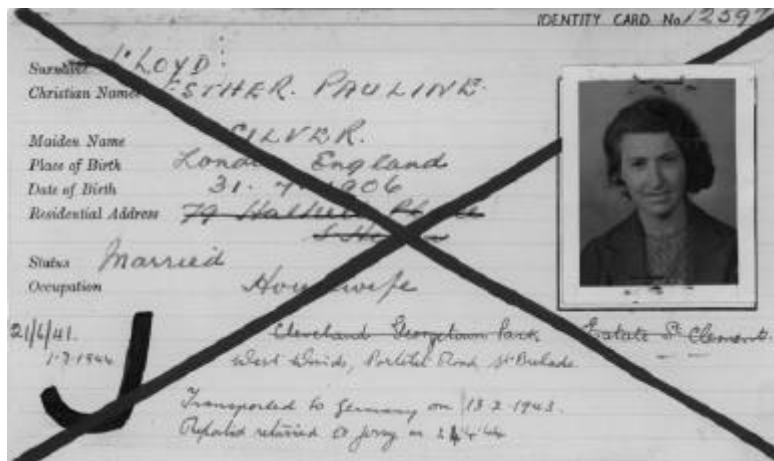 IDENTITY CARD No 12597
Surname LLOYD
Christian Names ESTHER. PAULINE.
Maiden Name SILVER.
Place of Birth London England
Date of Birth 31. 1906
Residential Address 79
Status Married
Occupation Housewife
21/6/41. Cleveland Georgetown Park Estate St Clements.
West Winds, Road St Brelade
Transported to Germany on 13-2-1943.
returned to Jersey on
J